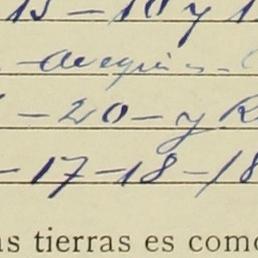 15 – 10 y 1
– 20 – y R
– 17 – 18 – 18
as tierras es como